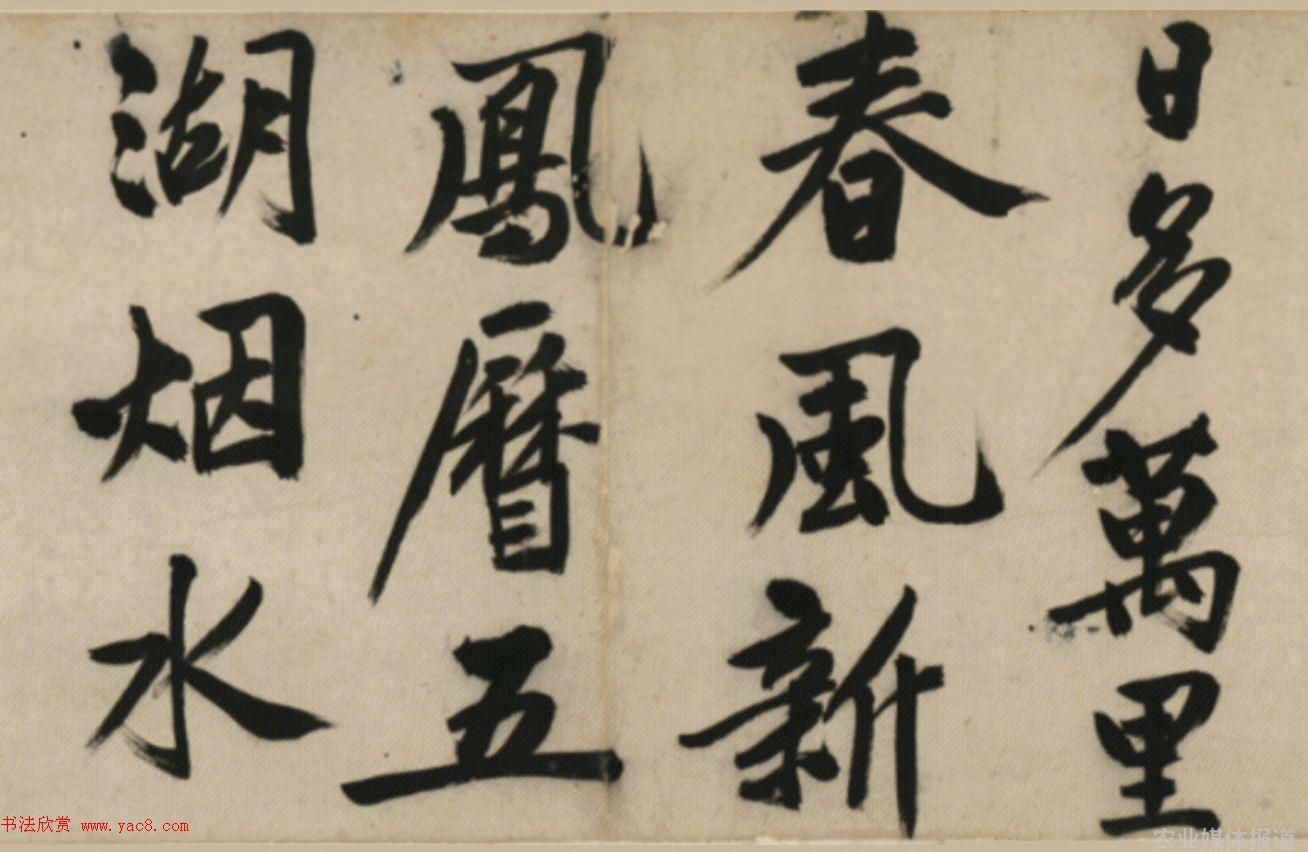 日多萬里
春風新
鳳曆五
湖烟水
书法欣赏 www.yac8.com
农业媒体报道